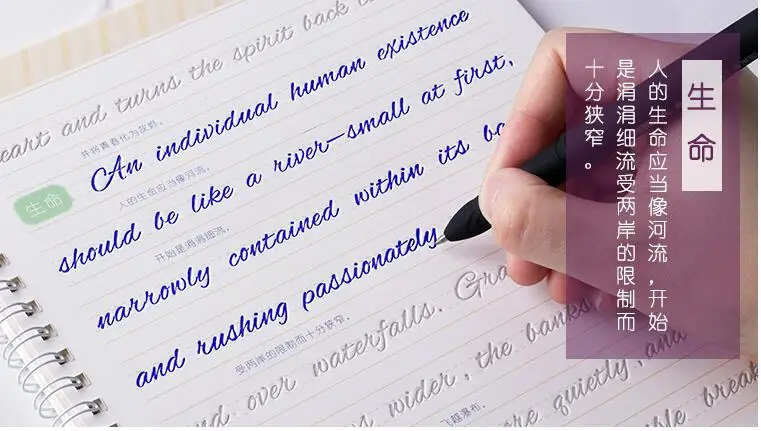 eart and turns the spirit back to
并将青春化为灰烬。
An individual human existence
生命
人的生命应当像河流，
should be like a river—small at first,
开始是涓涓细流，
narrowly contained within its ba
受两岸的限制而十分狭窄。
and rushing passionately
and over waterfalls. Gra
飞越瀑布，
wider, the banks
re quietly, and
ible break
生命
人的生命应当像河流，开始
是涓涓细流受两岸的限制而
十分狭窄。